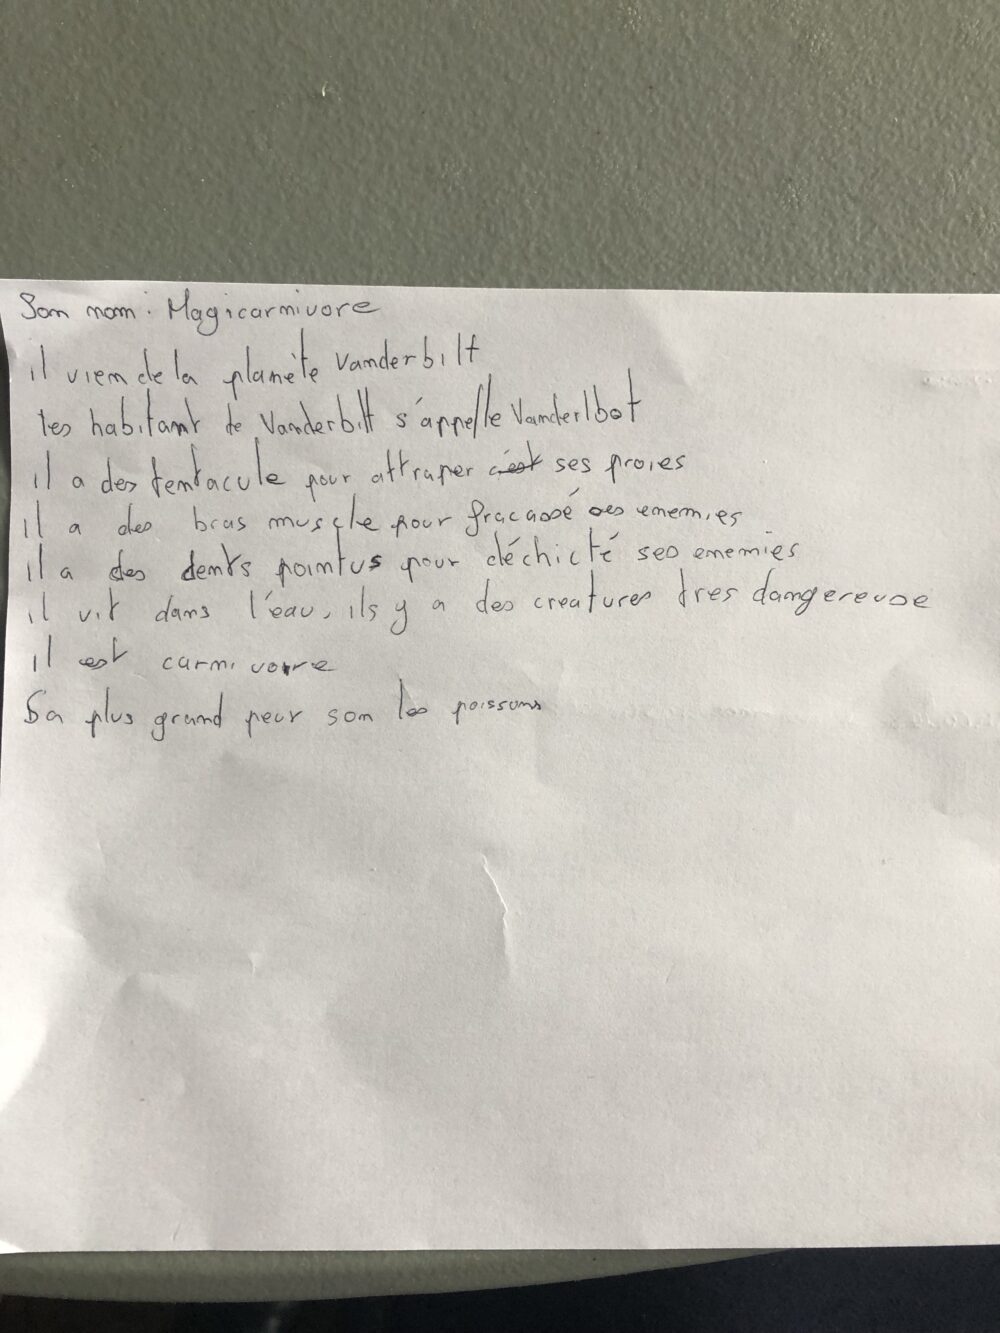 Son nom : Magicarnivore
il vien de la planète Vanderbilt
les habitant de Vanderbilt s'appelle Vanderlbot
il a des tentacule pour attraper c'est ses proies
il a des bras muscle pour fracassé ses enemies
il a des dents pointus pour déchicté ses enemies
il vit dans l'eau, ils y a des creatures tres dangereuse
il est carnivore
Sa plus grand peur son les poissons